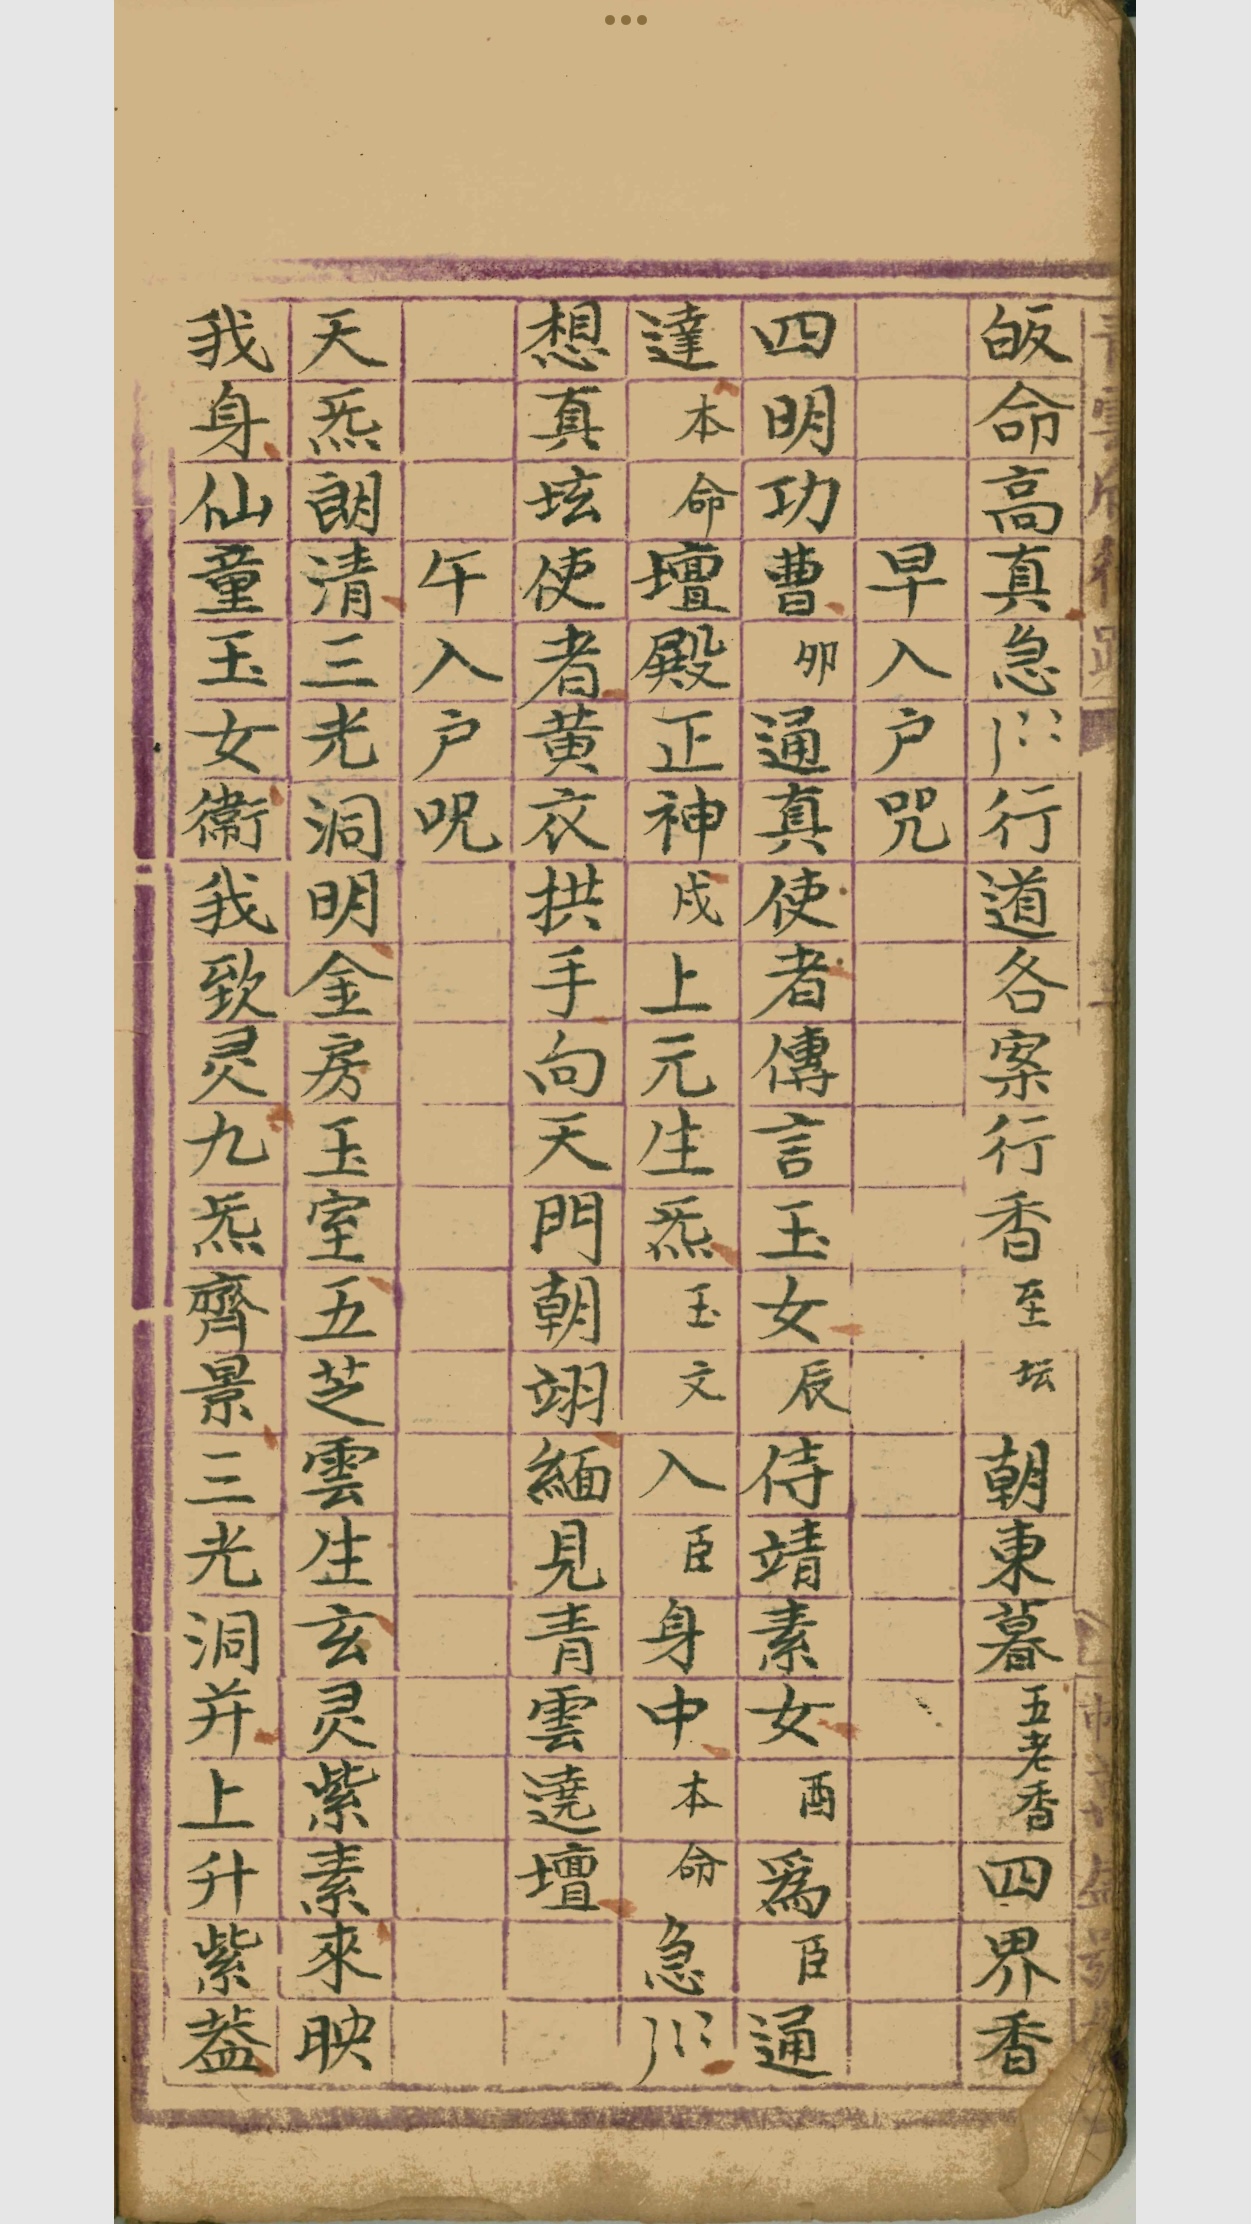 皈命高真急〻行道各案行香至坛朝東暮五老香四界香
早入户咒
四明功曹卯通真使者傳言玉女辰侍靖素女酉爲臣通
達本命壇殿正神戌上元生炁玉文入臣身中本命急〻
想真坛使者黄衣拱手向天門朝翊緬見青雲遶壇
午入户呪
天炁朗清三光洞明金房玉室五芝雲生玄灵紫素來映
我身仙童玉女衞我致灵九炁齊景三光洞并上升紫蓋